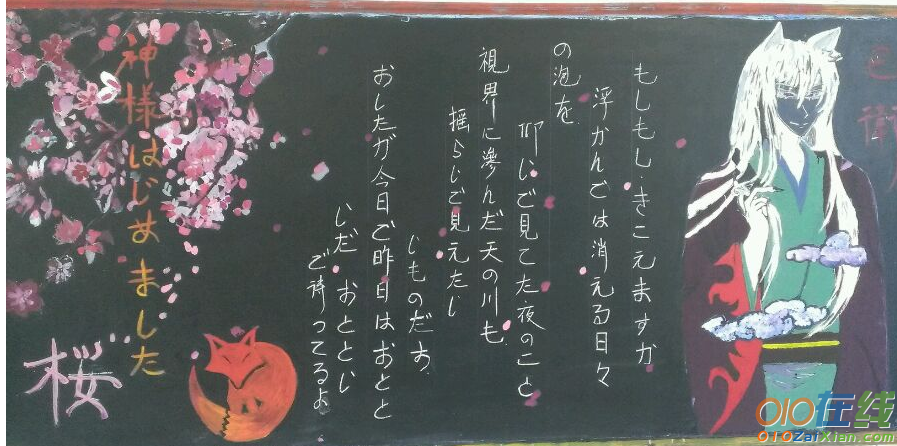 神様はじめました
桜
もしもし、きこえますか
浮かんでは消える日々
の泡を
仰じで見てた夜のこと
視界に滲んだ天の川も、
揺らじで見えたじ
じものだす。
おしたが今日で昨日はおとと
じだ おととじ
で待ってるよ
色街
010在线
010ZaiXian.com